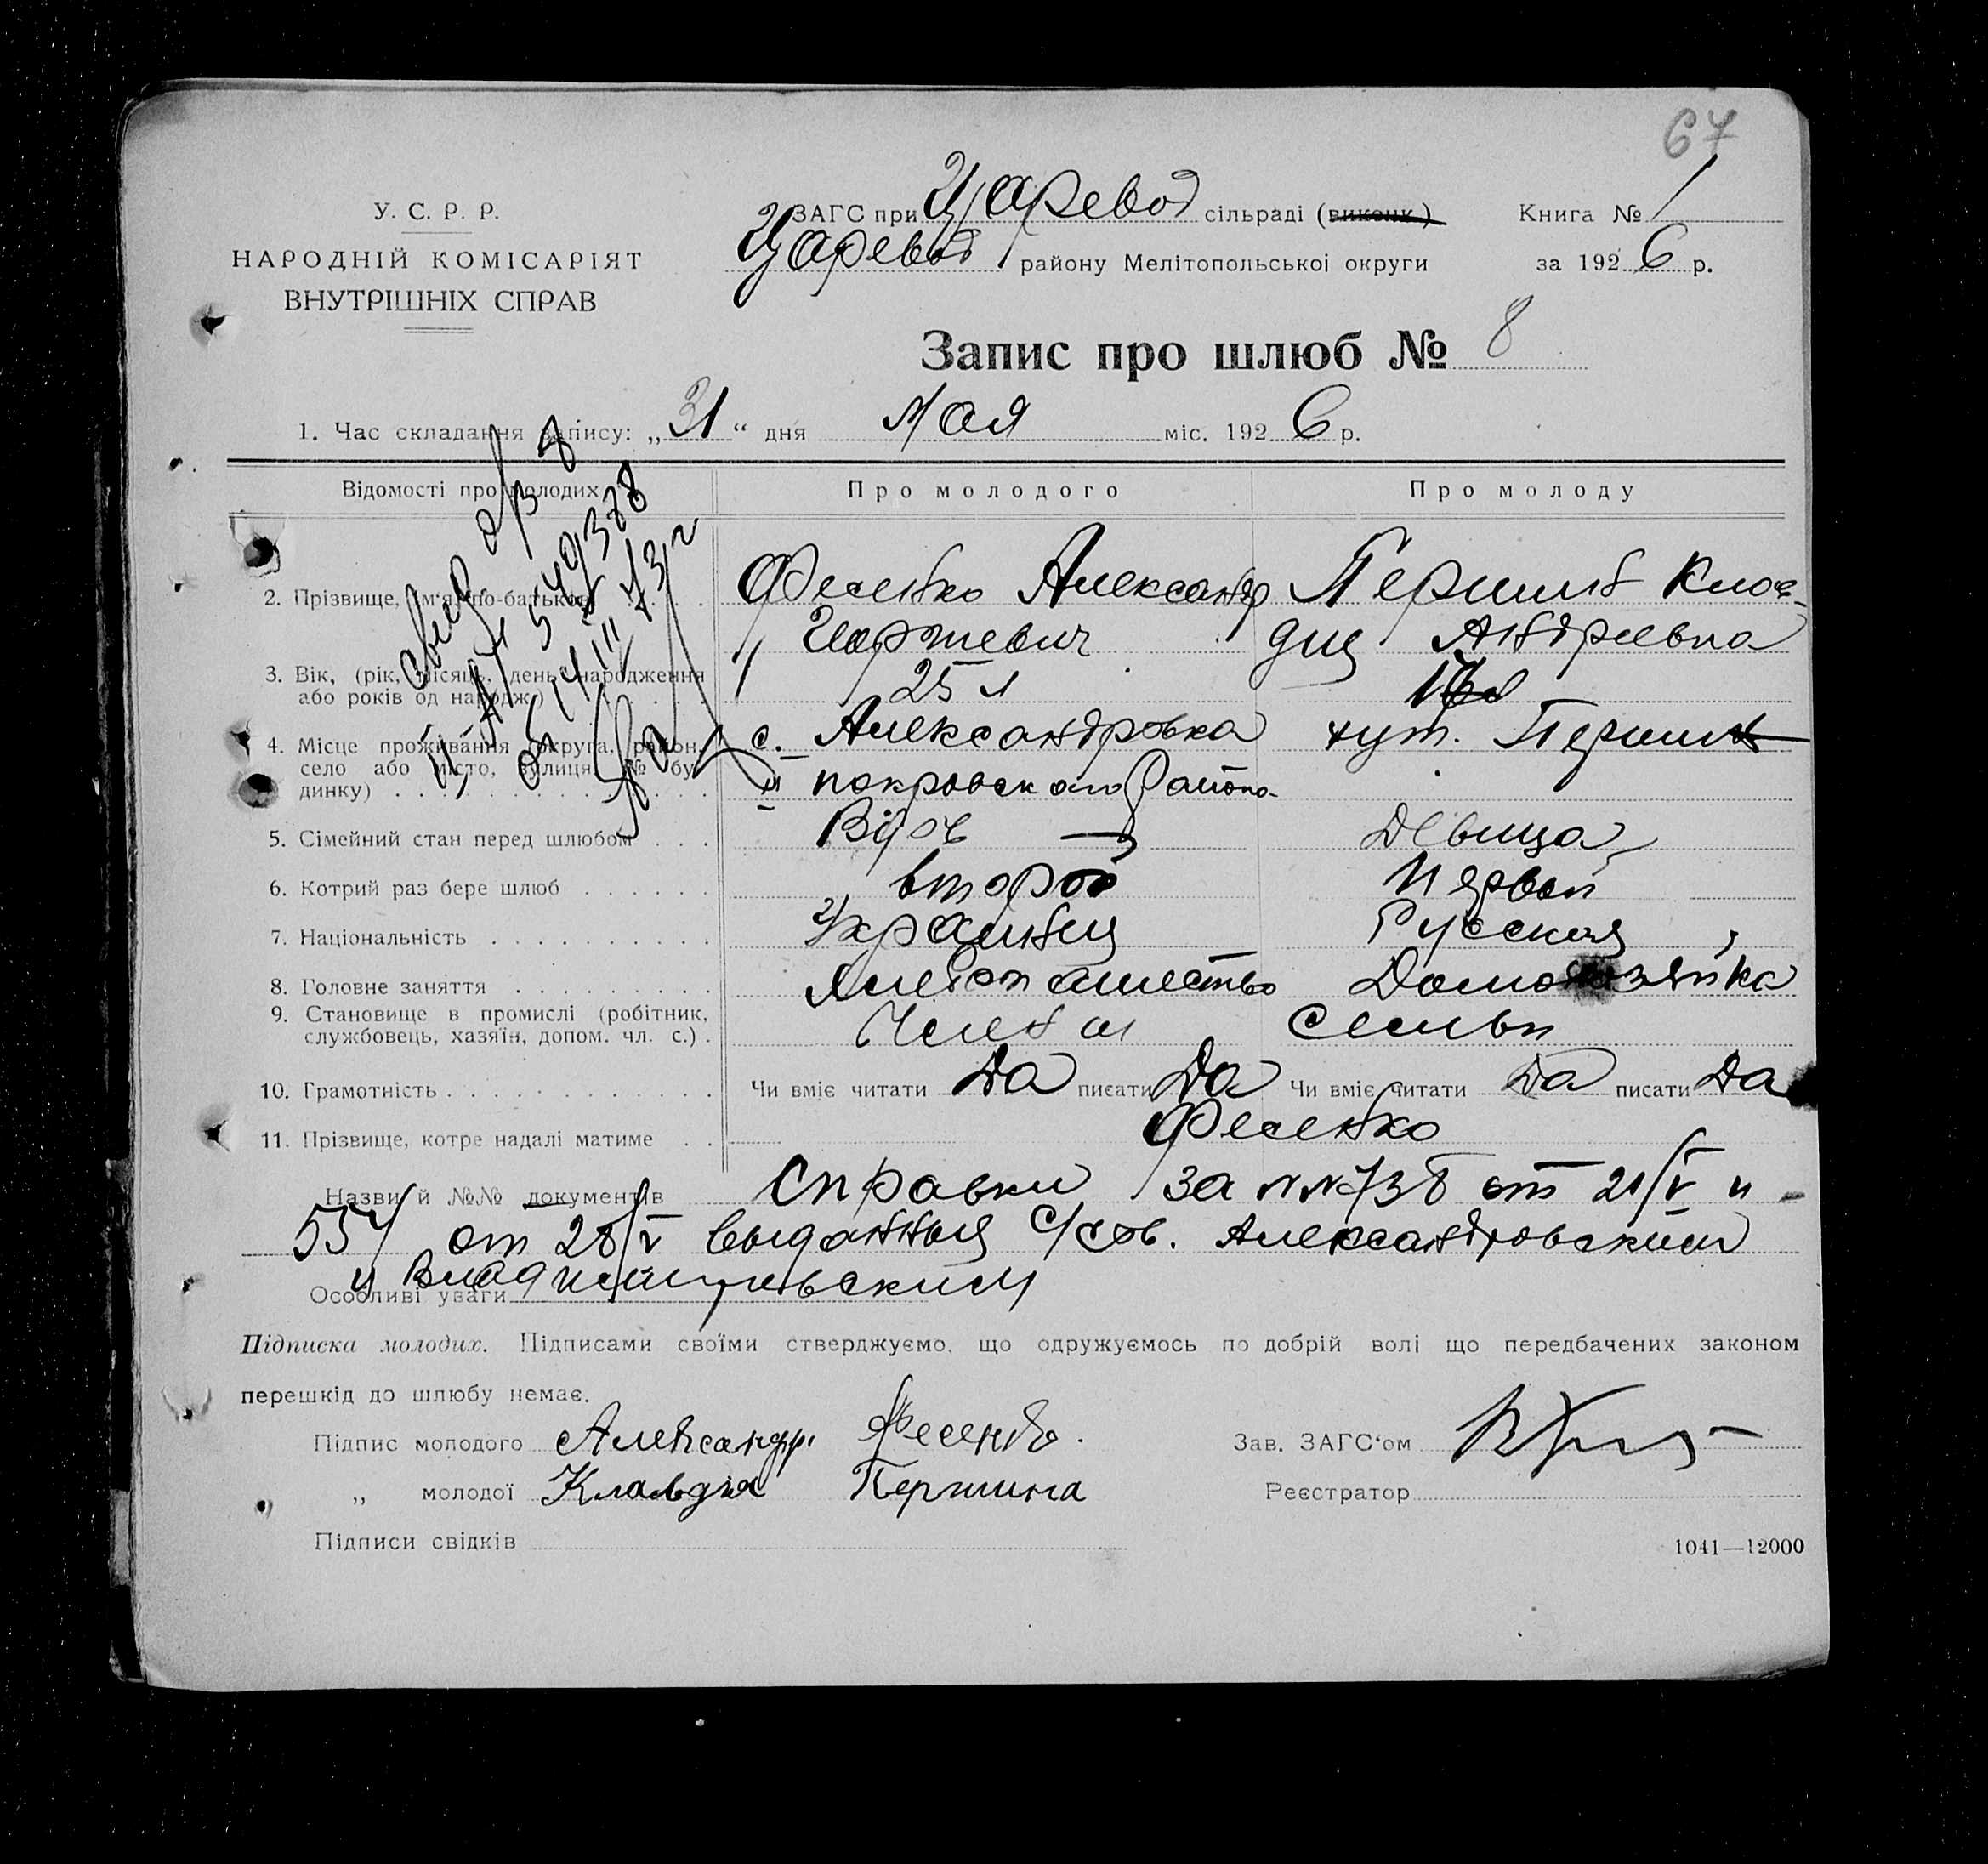 67
У. С. Р. Р.
НАРОДНІЙ КОМІСАРІЯТ
ВНУТРІШНІХ СПРАВ
ЗАГС при Царевод сільраді (виконк.) Книга № 1
Царевод району Мелітопольської округи за 1926 р.
Запис про шлюб № 8
1. Час складання запису: „31“ дня мая міс. 1926 р.
Відомості про молодих Про молодого Про молоду
2. Прізвище, ім'я, по-батькові Фесенко Александр Першин Клав-
Георгиевич дия Андреевна
3. Вік, (рік, місяць, день народження
або років од народж.) 25 л
4. Місце проживання (округа, район,
село або місто, вулиця, № бу-
динку) с. Александровка хут. Першин
покровского Района
5. Сімейний стан перед шлюбом Вдов Девица
6. Котрий раз бере шлюб второй Первый
7. Національність Украинец Русская
8. Головне заняття Хлебопашество Домохозяйка
9. Становище в промислі (робітник,
службовець, хазяїн, допом. чл. с.) Член семьи
10. Грамотність Чи вміє читати Да писати Да Чи вміє читати Да писати Да
11. Прізвище, котре надалі матиме Фесенко
Назви й №№ документів Справки за №№ 738 от 21/V и
557 от 28/V выданных с/сов. Александровским
и Владимировским
Особливі уваги
Підписка молодих. Підписами своїми стверджуємо, що одружуємось по добрій волі що передбачених законом
перешкід до шлюбу немає.
Підпис молодого Александр Фесенко. Зав. ЗАГС'ом
„ молодої Клавдия Першина Реєстратор
Підписи свідків
1041—12000